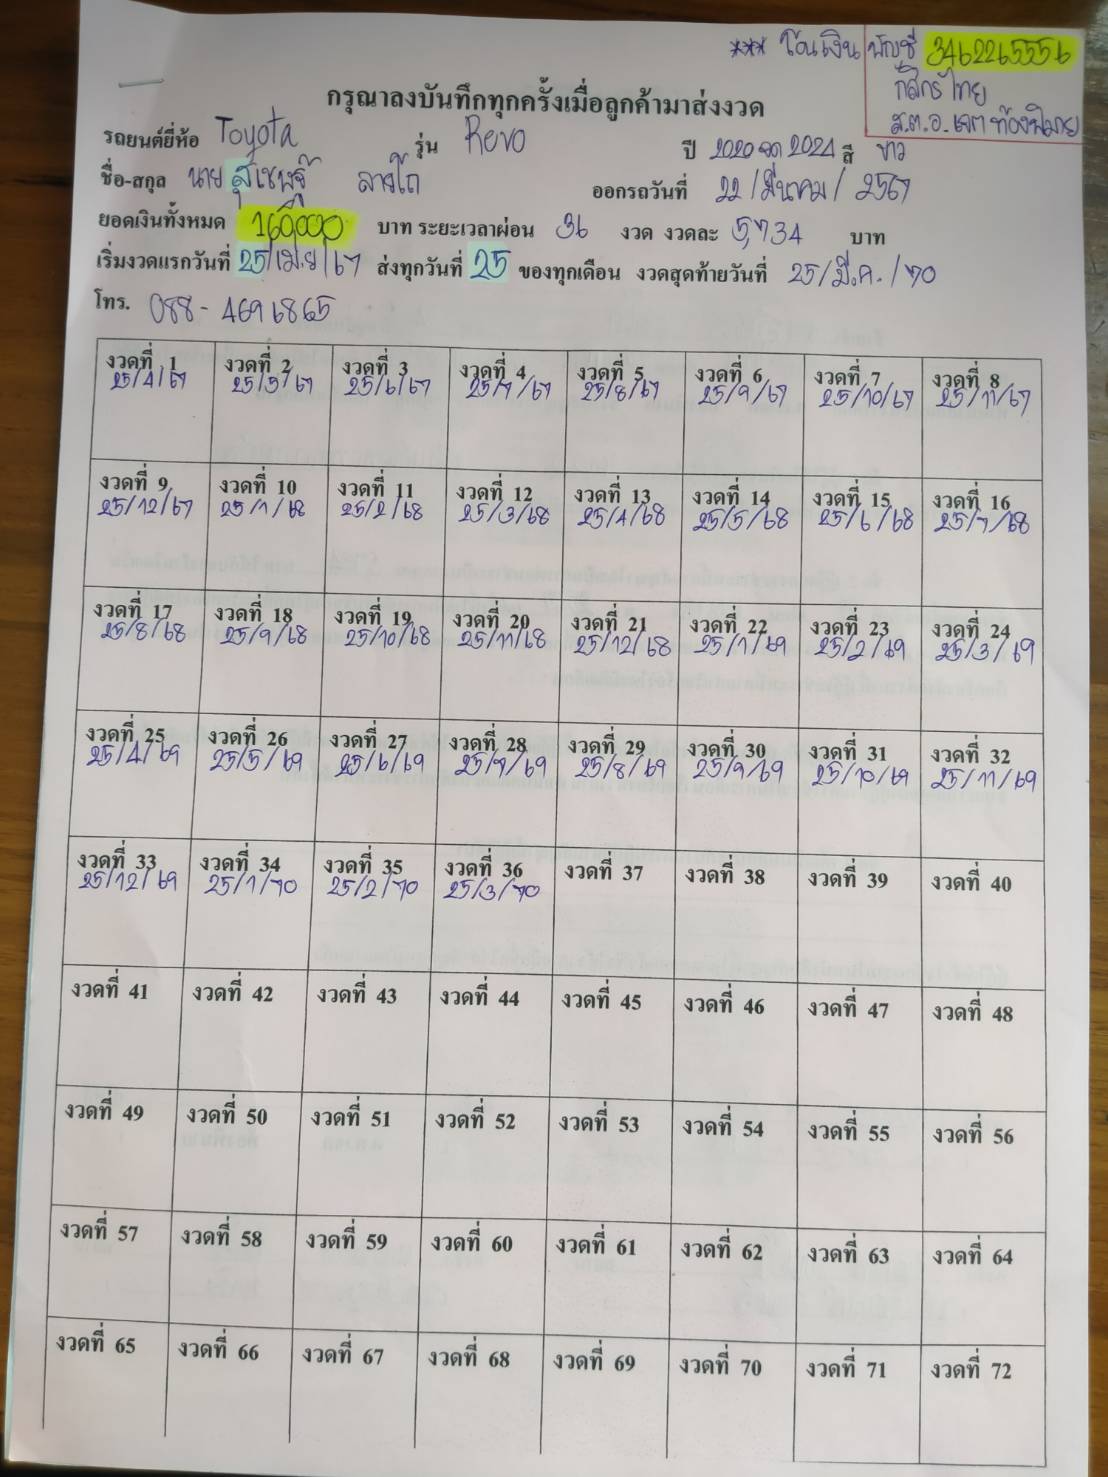 *** โอนเงิน บัญชี 3462265556
กสิกรไทย
ส.ต.อ. เจต ท้องพิมาย
กรุณาลงบันทึกทุกครั้งเมื่อลูกค้ามาส่งงวด
รถยนต์ยี่ห้อ Toyota รุ่น Revo ปี 2020 จด 2024 สี ขาว
ชื่อ-สกุล นาย ออกรถวันที่ 22 / มีนาคม / 2567
ยอดเงินทั้งหมด 160,000 บาท ระยะเวลาผ่อน 36 งวด งวดละ 5,734 บาท
เริ่มงวดแรกวันที่ 25/เม.ย/67 ส่งทุกวันที่ 25 ของทุกเดือน งวดสุดท้ายวันที่ 25/มี.ค./70
โทร. 088-4691865
งวดที่ 1 งวดที่ 2 งวดที่ 3 งวดที่ 4 งวดที่ 5 งวดที่ 6 งวดที่ 7 งวดที่ 8
25/4/67 25/5/67 25/6/67 25/7/67 25/8/67 25/9/67 25/10/67 25/11/67
งวดที่ 9 งวดที่ 10 งวดที่ 11 งวดที่ 12 งวดที่ 13 งวดที่ 14 งวดที่ 15 งวดที่ 16
25/12/67 25/1/68 25/2/68 25/3/68 25/4/68 25/5/68 25/6/68 25/7/68
งวดที่ 17 งวดที่ 18 งวดที่ 19 งวดที่ 20 งวดที่ 21 งวดที่ 22 งวดที่ 23 งวดที่ 24
25/8/68 25/9/68 25/10/68 25/11/68 25/12/68 25/1/69 25/2/69 25/3/69
งวดที่ 25 งวดที่ 26 งวดที่ 27 งวดที่ 28 งวดที่ 29 งวดที่ 30 งวดที่ 31 งวดที่ 32
25/4/69 25/5/69 25/6/69 25/7/69 25/8/69 25/9/69 25/10/69 25/11/69
งวดที่ 33 งวดที่ 34 งวดที่ 35 งวดที่ 36 งวดที่ 37 งวดที่ 38 งวดที่ 39 งวดที่ 40
25/12/69 25/1/70 25/2/70 25/3/70
งวดที่ 41 งวดที่ 42 งวดที่ 43 งวดที่ 44 งวดที่ 45 งวดที่ 46 งวดที่ 47 งวดที่ 48
งวดที่ 49 งวดที่ 50 งวดที่ 51 งวดที่ 52 งวดที่ 53 งวดที่ 54 งวดที่ 55 งวดที่ 56
งวดที่ 57 งวดที่ 58 งวดที่ 59 งวดที่ 60 งวดที่ 61 งวดที่ 62 งวดที่ 63 งวดที่ 64
งวดที่ 65 งวดที่ 66 งวดที่ 67 งวดที่ 68 งวดที่ 69 งวดที่ 70 งวดที่ 71 งวดที่ 72